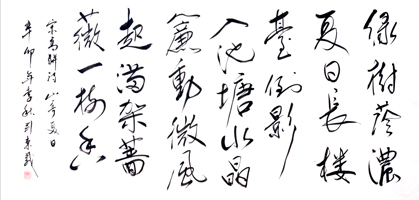 緑樹蔭濃
夏日長樓
臺倒影
入池塘水晶
簾動微風
起滿架薔
薇一院香
高駢詩山亭夏日
辛卯年季秋